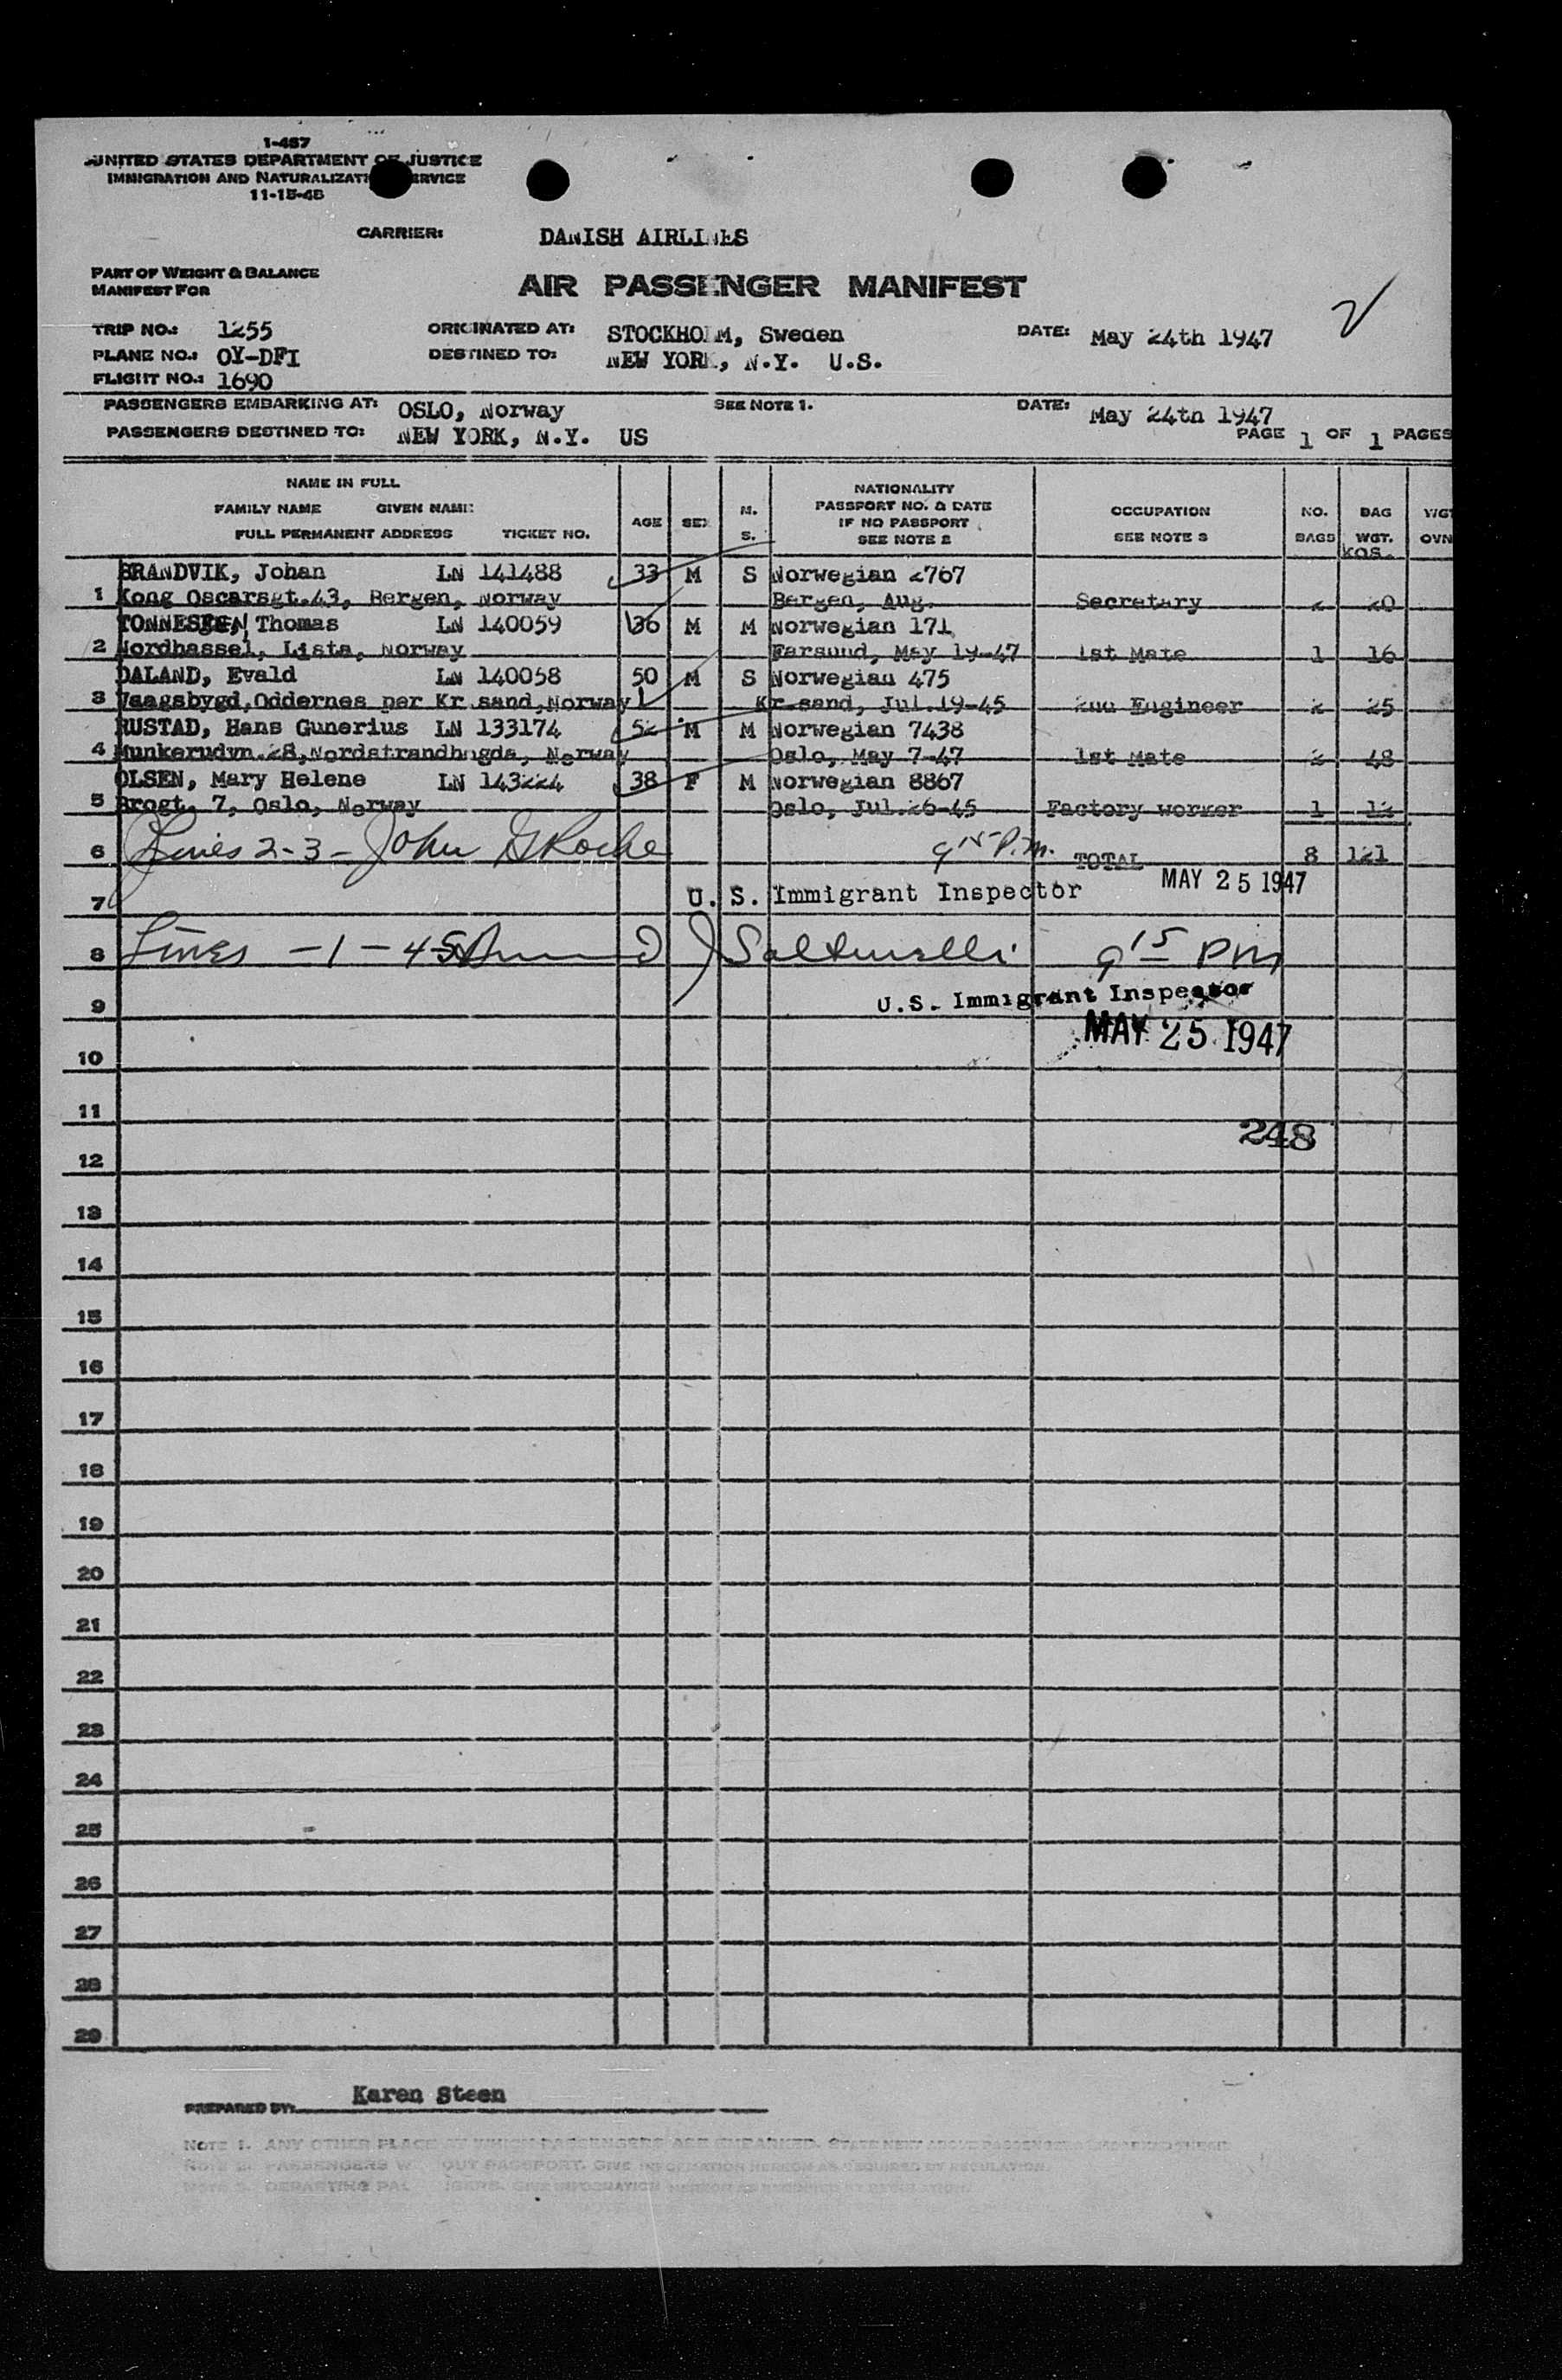 1-467
UNITED STATES DEPARTMENT OF JUSTICE
IMMIGRATION AND NATURALIZATI SERVICE
11-15-45
CARRIER: DANISH AIRLINES
PART OF WEIGHT & BALANCE
MANIFEST FOR
AIR PASSENGER MANIFEST
TRIP NO.: 1255 ORIGINATED AT: STOCKHOLM, Sweden DATE: May 24th 1947
PLANE NO.: OY-DFI DESTINED TO: NEW YORK, N.Y. U.S.
FLIGHT NO.: 1690
PASSENGERS EMBARKING AT: OSLO, Norway SEE NOTE 1. DATE: May 24th 1947
PASSENGERS DESTINED TO: NEW YORK, N.Y. US PAGE 1 OF 1 PAGES
NAME IN FULL
FAMILY NAME GIVEN NAME
FULL PERMANENT ADDRESS TICKET NO. AGE SEX M. S. NATIONALITY PASSPORT NO. & DATE IF NO PASSPORT SEE NOTE 2 OCCUPATION SEE NOTE 3 NO. BAGS BAG WGT. WGT OWN
kgs.
BRANDVIK, Johan LN 141488 33 M S Norwegian 2767
1 Kong Oscarsgt.43, Bergen, Norway Bergen, Aug. Secretary 2 20
TONNESEN, Thomas LN 140059 36 M M Norwegian 171
2 Nordhassel, Lista, Norway Farsund, May 19-47 1st Mate 1 16
DALAND, Evald LN 140058 50 M S Norwegian 475
3 Vaagsbygd, Oddernes per Kr.sand, Norway Kr.sand, Jul.19-45 2nd Engineer 2 25
RUSTAD, Hans Gunerius LN 133174 52 M M Norwegian 7438
4 Munkerudvn.28, Nordstrandhøgda, Norway Oslo, May 7-47 1st Mate 2 48
OLSEN, Mary Helene LN 143224 38 F M Norwegian 8867
5 Brogt. 7, Oslo, Norway Oslo, Jul.26-45 Factory worker 1 12
6 Lines 2-3 - John G Roche 9 15 P.m. TOTAL 8 121
7 U. S. Immigrant Inspector MAY 25 1947
8 Lines - 1 - 4-5 9 15 PM
9 U.S. Immigrant Inspector
MAY 25 1947
10
11
248
12
13
14
15
16
17
18
19
20
21
22
23
24
25
26
27
28
29
PREPARED BY: Karen Steen
NOTE 1. ANY OTHER PLACE AT WHICH PASSENGERS ARE EMBARKED. STATE NEXT ABOVE PASSENGERS
NOTE 2. PASSENGERS W OUT PASSPORT. GIVE INFORMATION HEREON AS REQUIRED BY REGULATION.
NOTE 3. DEPARTING PA GERS. GIVE INFORMATION HEREON AS REQUIRED BY REGULATION.